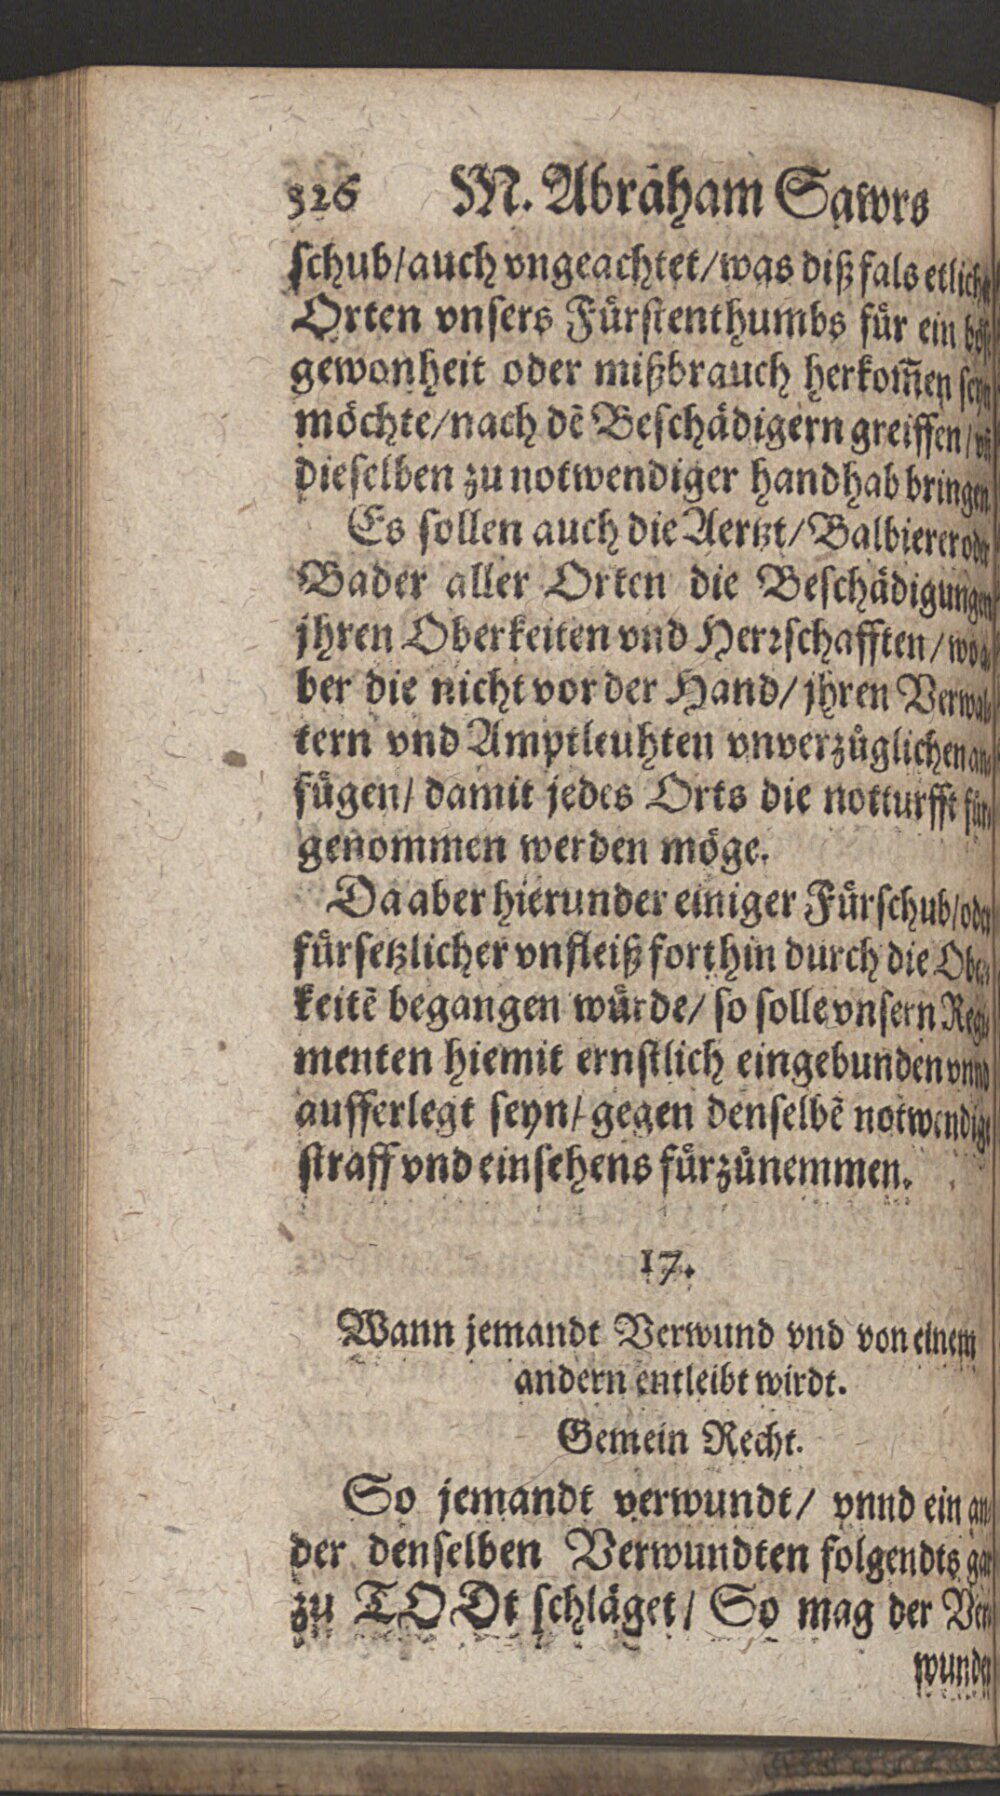 326 M. Abraham Sawrs
schub/auch vngeachtet/was diß fals etliche
Orten vnsers Fürstenthumbs für ein böse
gewonheit oder mißbrauch herkom̃en seyn
möchte/nach dẽ Beschädigern greiffen/vñ
dieselben zu notwendiger handhab bringen
Es sollen auch die Aertzt/Balbierer oder
Bader aller Orten die Beschädigungen
jhren Oberkeiten vnd Herrschafften/wo a-
ber die nicht vor der Hand/jhren Verwal-
tern vnd Amptleuhten vnverzüglichen an-
fügen/damit jedes Orts die notturfft für-
genommen werden möge.
Da aber hierunder einiger Fürschub/oder
fürsetzlicher vnfleiß forthin durch die Ober-
keitẽ begangen würde/so solle vnsern Regi-
menten hiemit ernstlich eingebunden vnnd
aufferlegt seyn/gegen denselbẽ notwendige
straff vnd einsehens fürzunemmen.
17.
Wann jemandt Verwund vnd von einem
andern entleibt wirdt.
Gemein Recht.
So jemandt verwundt/ vnnd ein an-
der denselben Verwundten folgendts gar
zu TODt schläget/ So mag der Ver-
wunder